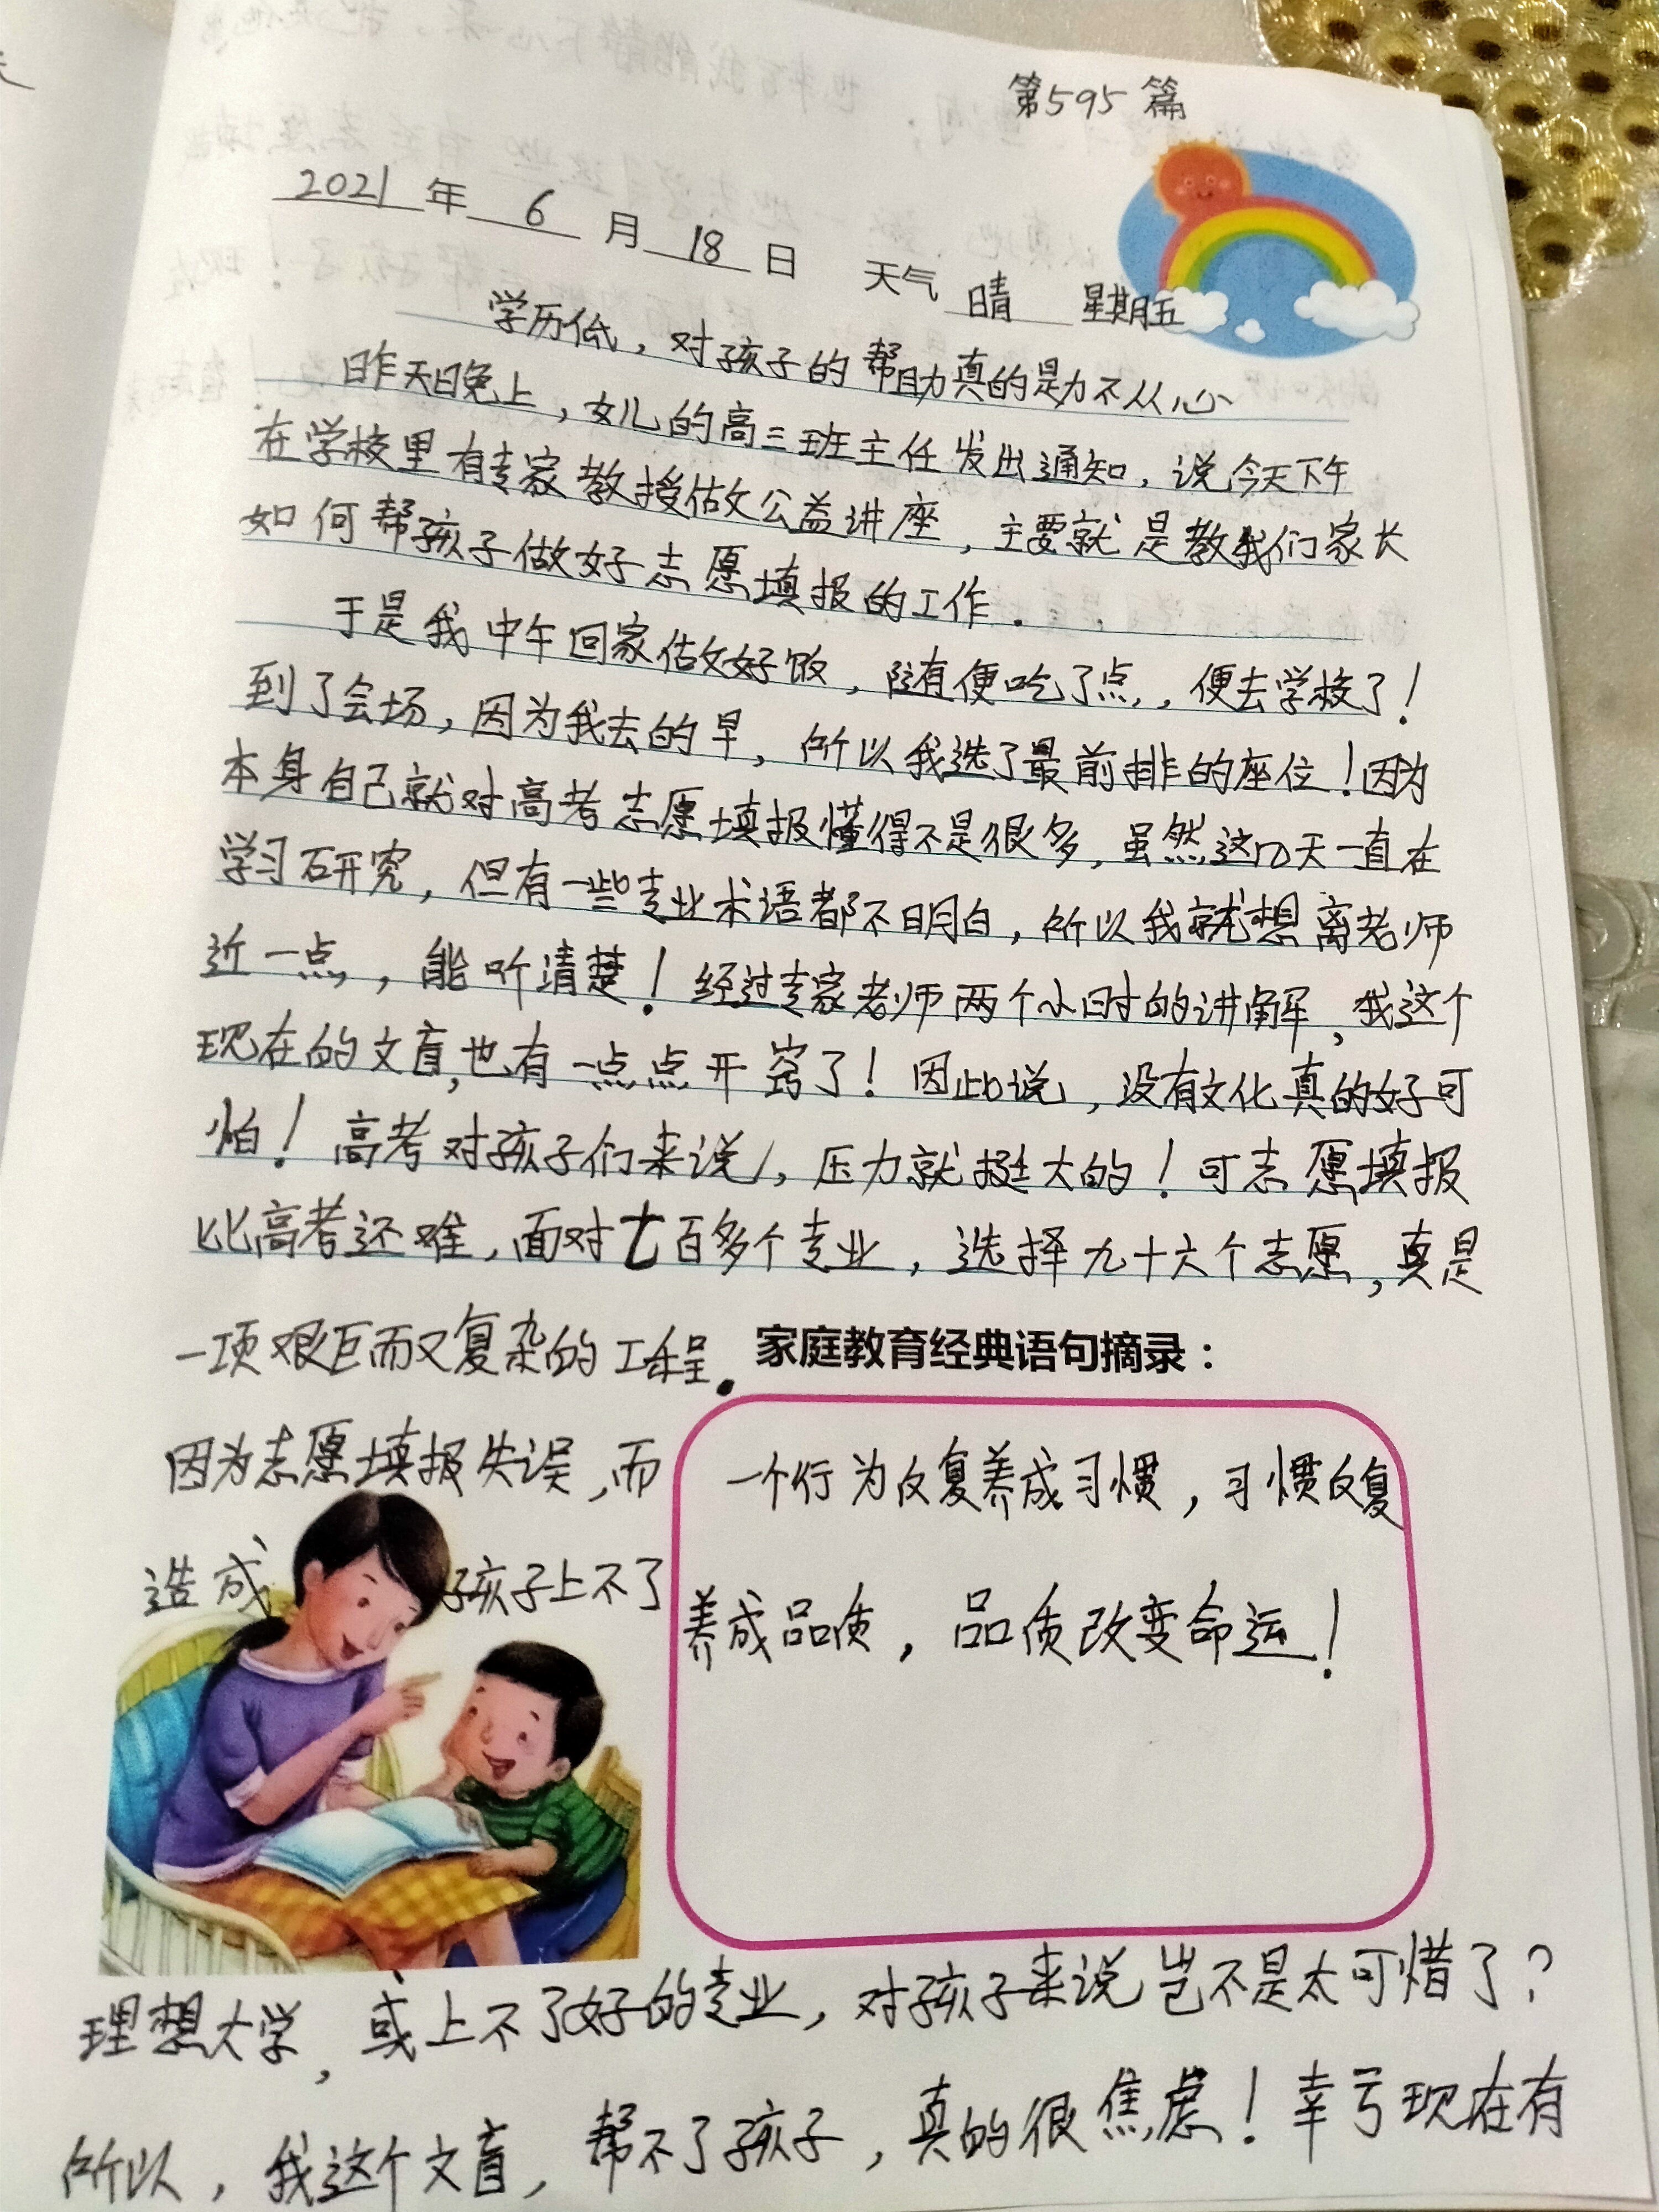 第595篇
2021年6月18日 天气 晴 星期五
学历低，对孩子的帮助真的是力不从心
昨天晚上，女儿的高三班主任发出通知，说今天下午
在学校里有专家教授做公益讲座，主要就是教我们家长
如何帮孩子做好志愿填报的工作.
于是我中午回家做好饭，随便吃了点，便去学校了！
到了会场，因为我去的早，所以我选了最前排的座位！因为
本身自己就对高考志愿填报懂得不是很多，虽然这几天一直在
学习研究，但有一些专业术语都不明白，所以我就想离老师
近一点，能听清楚！经过专家老师两个小时的讲解，我这个
现在的文盲，也有一点点开窍了！因此说，没有文化真的好可
怕！高考对孩子们来说，压力就挺大的！可志愿填报
比高考还难，面对七百多个专业，选择九十六个志愿，真是
一项艰巨而又复杂的工程.
因为志愿填报失误，而
造成孩子上不了
家庭教育经典语句摘录：
一个行为反复养成习惯，习惯反复
养成品质，品质改变命运！
理想大学，或上不了好的专业，对孩子来说岂不是太可惜了？
所以，我这个文盲，帮不了孩子，真的很焦虑！幸亏现在有